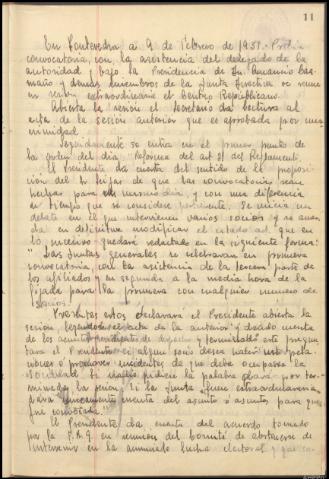 11
En Pontevedra, a 9 de Febrero de 1931. Previa
convocatoria, con la asistencia del delegado de la
autoridad y bajo la Presidencia de Dn.
y demas miembros de la Junta Directiva se reune
en sesión extraordinaria el Centro Republicano.
Abierta la sesión el Secretario da lectura al
acta de la sesión anterior que es aprobada por una-
nimidad.
Seguidamente se entra en el primer punto de
la orden del dia. Reforma del art. del Reglamento.
El Presidente da cuenta del sentido de la proposi-
ción de que las convocatorias sean
hechas para el mismo dia y con una diferencia
en tiempo que se considere suficiente. Se inicia un
debate en el que intervienen varios socios y se acuer-
da en definitiva modificar el citado art. que en
lo sucesivo quedará redactado en la siguiente forma:
"Las Juntas generales se celebraran en primera
convocatoria con la asistencia de la tercera parte de
los afiliados y en segunda a la media hora de la
fijada para la primera con cualquier numero de
socios.
estos declarará el Presidente abierta la
sesión el acta de la anterior y dada cuenta
de los asuntos este pregun-
tará el Presidente si algun socio desea
de que deba ocuparse la
Sociedad. Si nadie pidiere la palabra dará por ter-
minada la sesión. Si la Junta fuese extraordinaria
para unicamente cuenta del asunto o asuntos para que
fue convocada."
El Presidente da cuenta del acuerdo tomado
por la en reunion del Comité de abstenerse de
intervenir en la anunciada lucha electoral y que